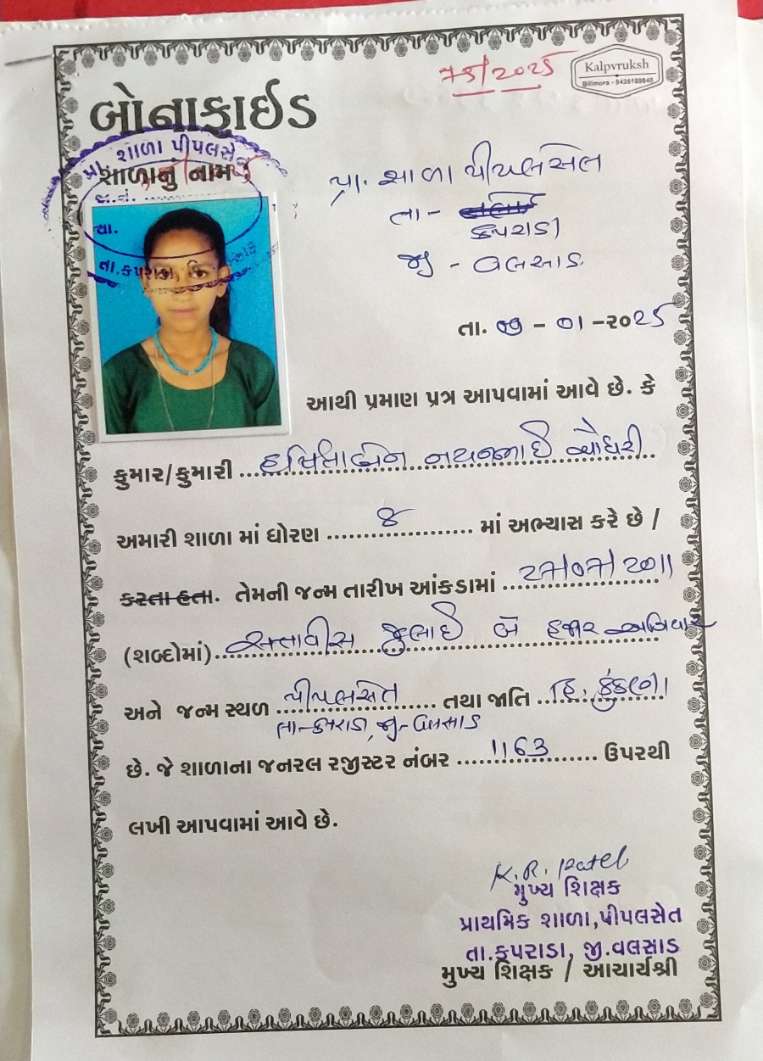 75/2025
Kalpvruksh
Bilimora - 9426189845
બોનાફાઈડ
પ્રા. શાળા પીપલસેત
શાળાનું નામ
તા. કપરાડા, જિ.
પ્રા. શાળા પીપલસેત
તા - કપરાડા
જી - વલસાડ
તા. 09 - 01 - ૨૦25
આથી પ્રમાણ પત્ર આપવામાં આવે છે. કે
કુમાર/કુમારી નયનભાઈ ચૌધરી
અમારી શાળા માં ધોરણ ૪ માં અભ્યાસ કરે છે /
કરતા હતા. તેમની જન્મ તારીખ આંકડામાં 27/07/2011
(શબ્દોમાં) સત્તાવીસ જુલાઈ બે હજાર અગિયાર
અને જન્મ સ્થળ પીપલસેત તથા જાતિ હિ. કુંકણા
તા-કપરાડા, જી-વલસાડ
છે. જે શાળાના જનરલ રજીસ્ટર નંબર 1163 ઉપરથી
લખી આપવામાં આવે છે.
K. R. Patel
મુખ્ય શિક્ષક
પ્રાથમિક શાળા,પીપલસેત
તા.કપરાડા, જી.વલસાડ
મુખ્ય શિક્ષક / આચાર્યશ્રી